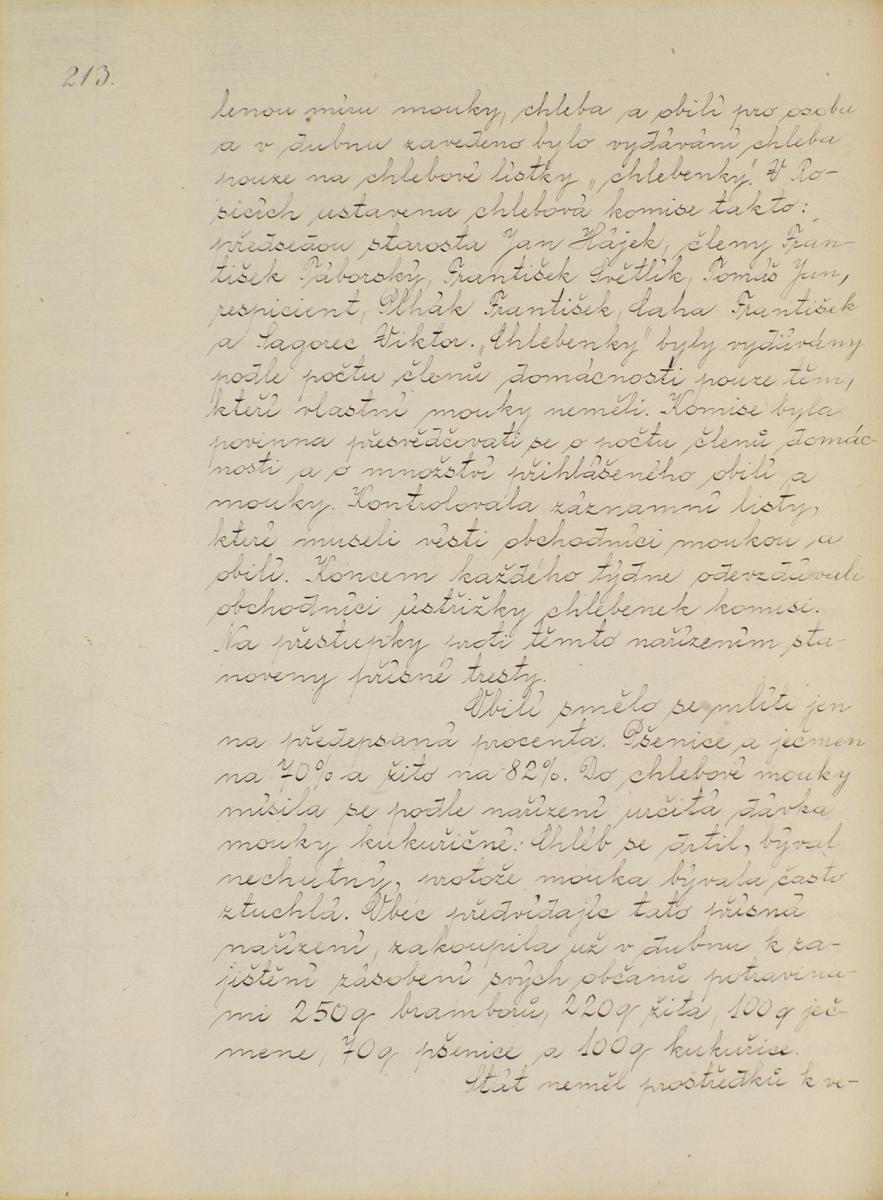 213.
lenou míru mouky, chleba a obilí pro osobu
a v dubnu zavedeno bylo vydávání chleba
pouze na chlebové lístky „chlebenky“. V Ro-
sicích ustavena chlebová komise takto:
předsedou starosta Jan Hájek, členy Fran-
tišek Táborský, František Světlík, Tomáš Jan,
respicient, Plhák František, Caha František
a Sagorec Viktor. „Chlebenky“ byly vydávány
podle počtu členů domácnosti pouze těm,
kteří vlastní mouky neměli. Komise byla
povinna přesvědčovati se o počtu členů domác-
nosti a o množství přihlášeného obilí a
mouky. Kontrolovala záznamní listy,
které museli vésti obchodníci moukou a
obilí. Koncem každého týdne odevzdávali
obchodníci ústřižky chlebenek komisi.
Na přestupky proti těmto nařízením sta-
noveny přísné tresty.
Obilí smělo se mlíti jen
na předepsaná procenta. Pšenice a ječmen
na 70% a žito na 82%. Do chlebové mouky
mísila se podle nařízení určitá dávka
mouky kukuřičné. Chléb se drtil, býval
nechutný, protože mouka bývala často
ztuchlá. Obec předvídajíc tato přísná
nařízení, zakoupila už v dubnu k za-
jištění zásobení svých občanů potravina-
mi 250q bramborů, 220q žita, 100q ječ-
mene, 70q pšenice a 100q kukuřice.
Stát neměl prostředků k ve-